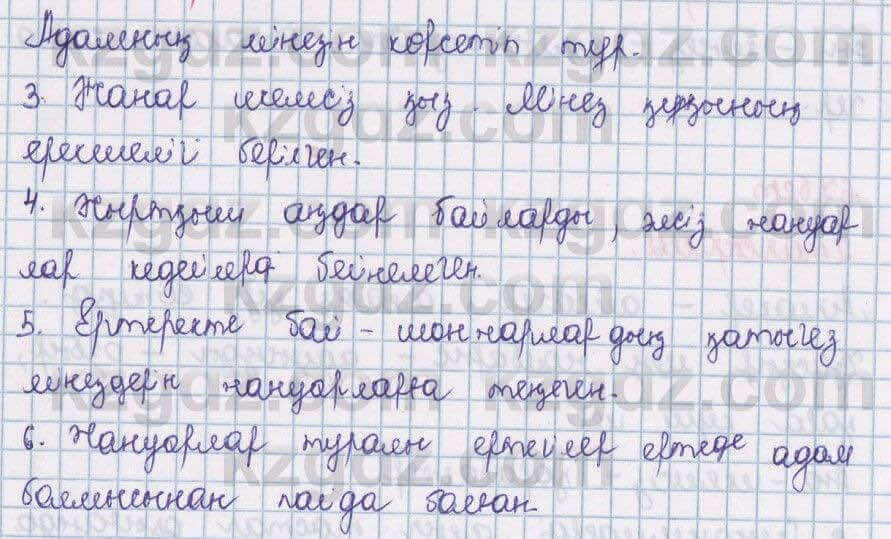 Адамның мінезін көрсетіп тұр.
3. Жанар шешесіз қыз. Мінез құрқының
ерекшелігі берілген.
4. Жыртқыш аңдар байларды, әлсіз жануар
лар кедейлерді бейнелеген.
5. Ертеректе бай - шонжарлардың қатыгез
міңездерін жануарларға теңеген.
6. Жануарлар туралы ертегілер ертеде адам
баласынан пайда болған.
kzgdz.com